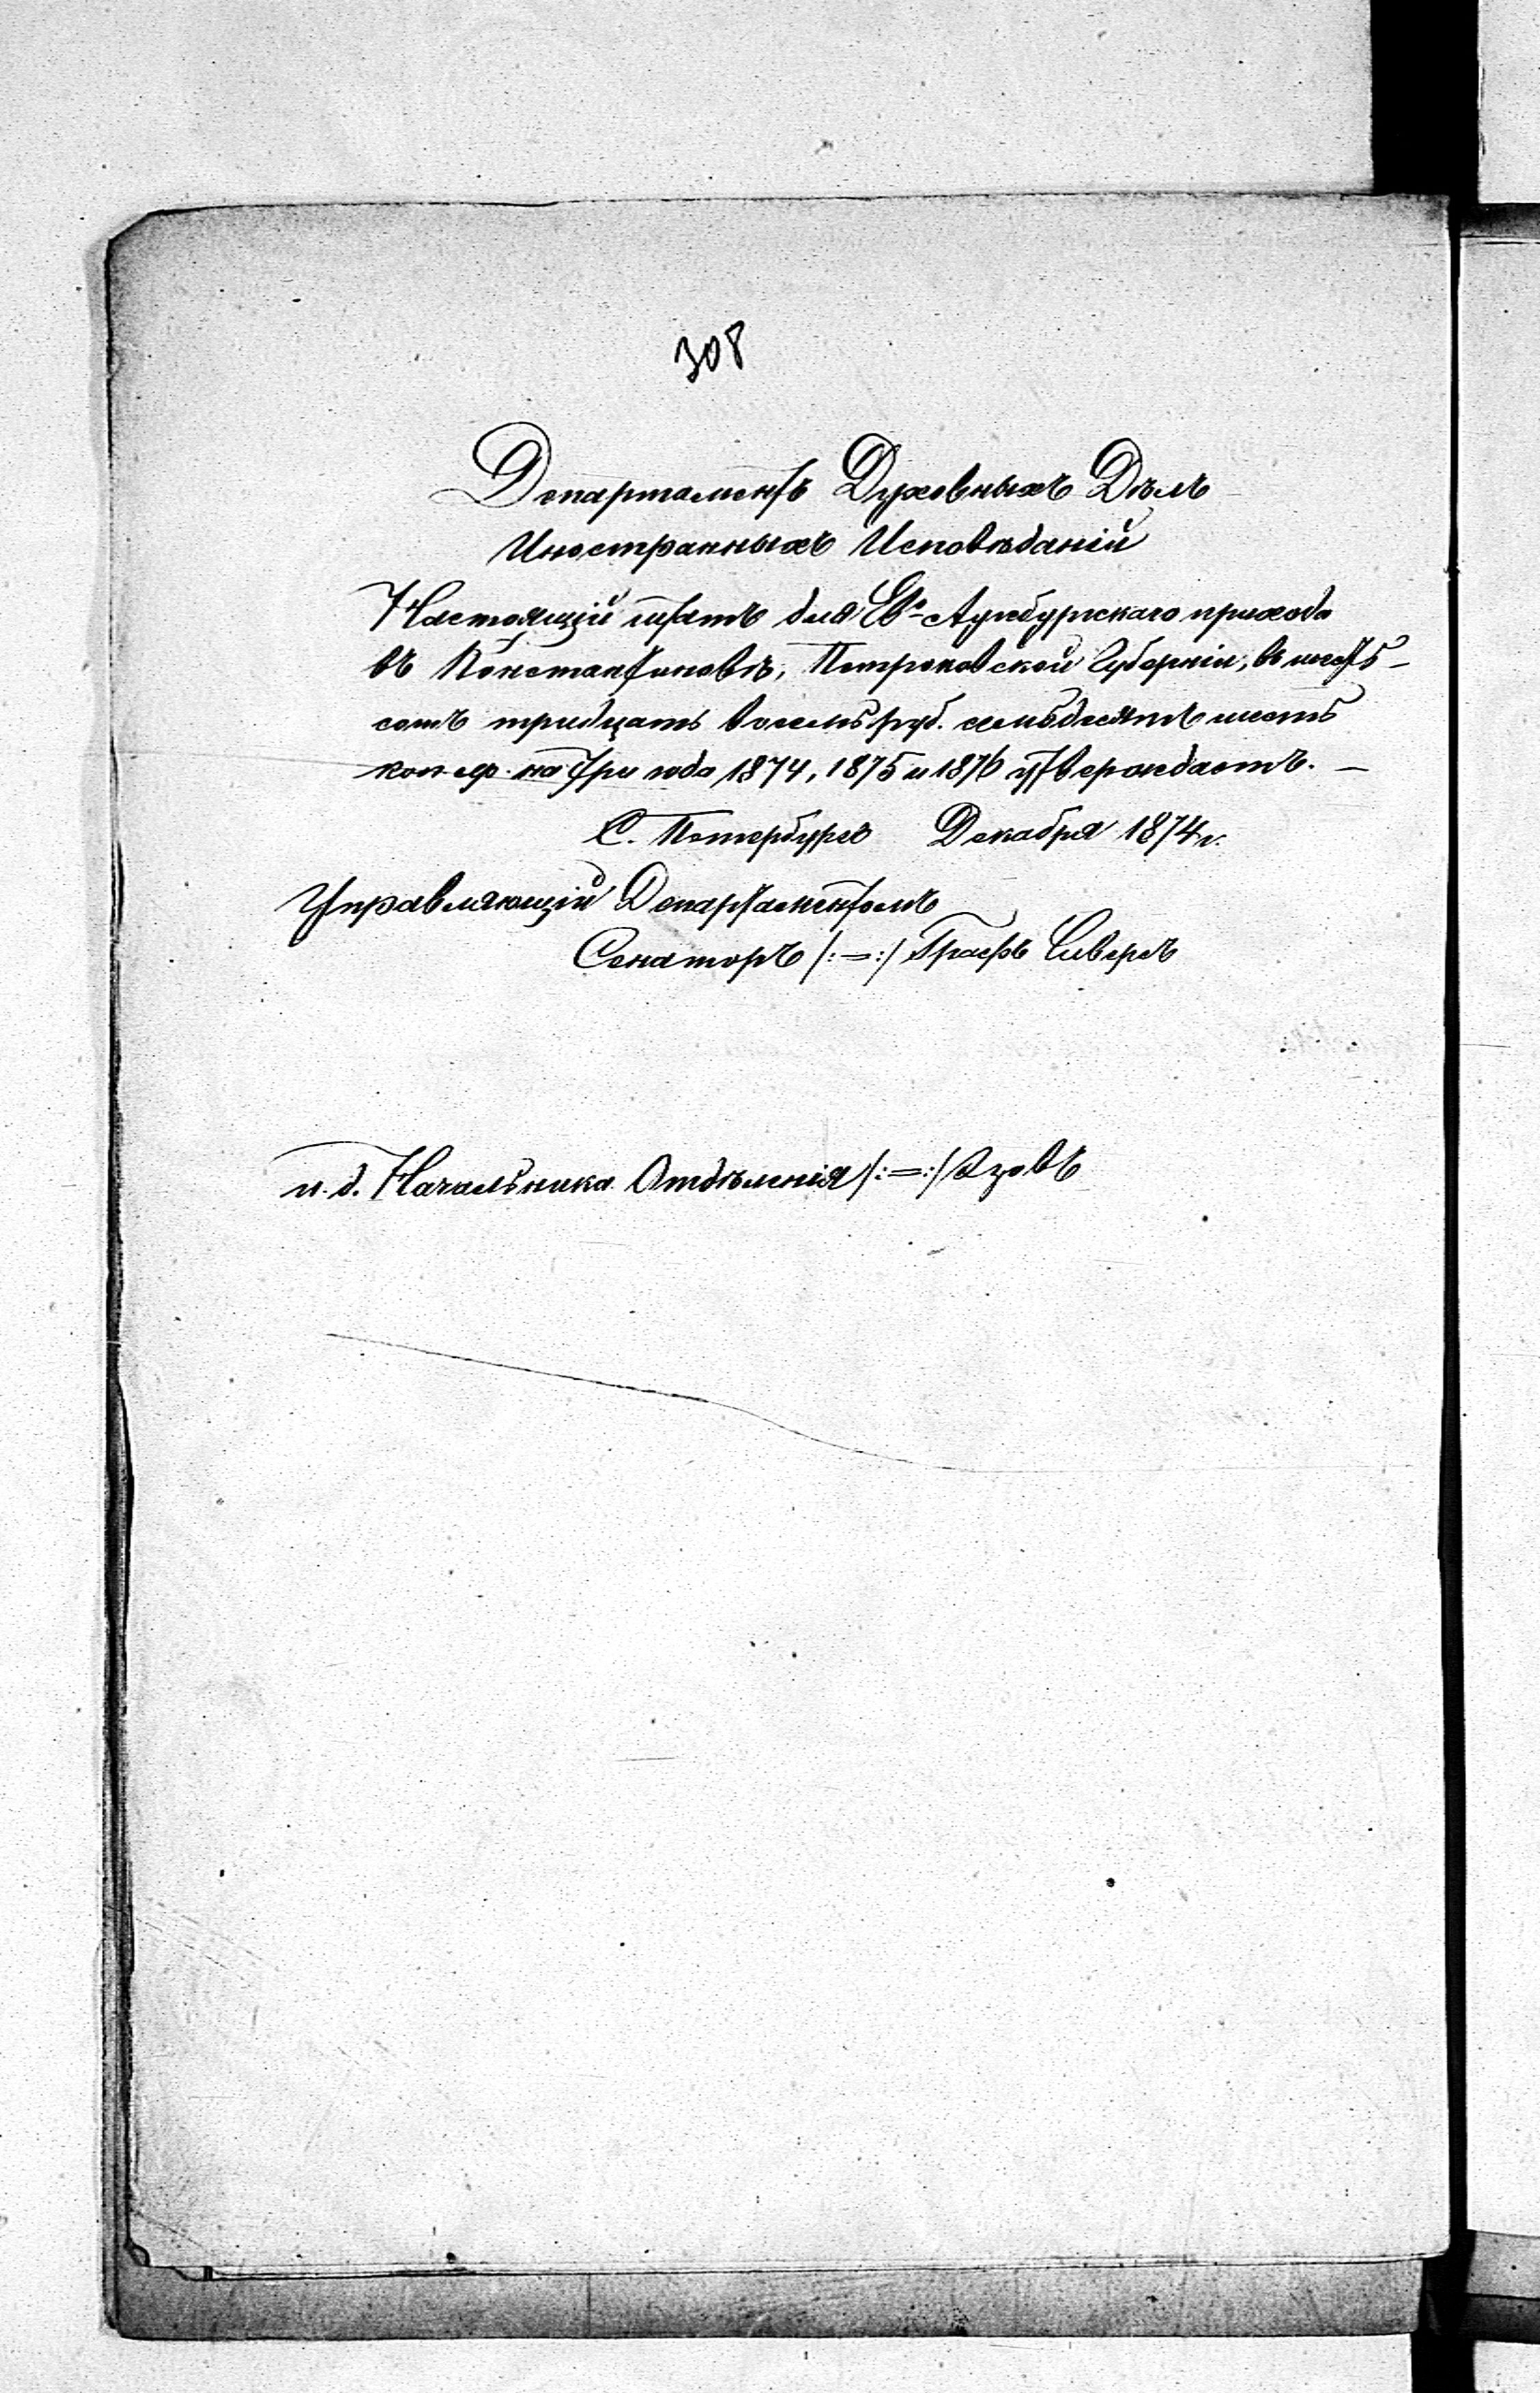 308
Департаментъ Духовныхъ Дѣлъ
Иностранныхъ Исповѣданій
Настоящій штатъ для Ев.-Аугсбургскаго прихода
въ Константиновѣ, Петроковской Губерніи, въ шесть-
сотъ тридцать восемь руб. семьдесятъ шесть
коп. сер. на три года 1874, 1875 и 1876 утверждаетъ. —
С. Петербургъ Декабря 1874 г.
Управляющій Департаментомъ
Сенаторъ /:=:/ Графъ Сиверсъ
и. д. Начальника Отдѣленія /:=:/